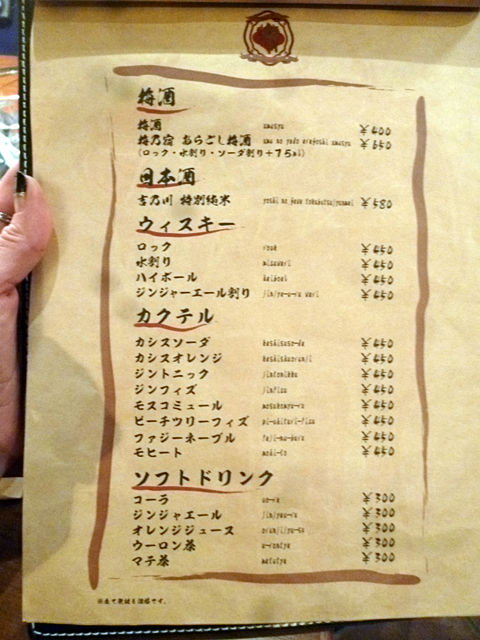 梅酒
梅酒 umesyu ¥400
梅乃宿 あらごし梅酒 ume no yado aragoshi umesyu ¥650
(ロック・水割り・ソーダ割り+75ml)
日本酒
吉乃川 特別純米 yoshi no gawa tokubetsujyunmai ¥580
ウィスキー
ロック ¥450
水割り mizuwari ¥450
ハイボール haibool ¥450
ジンジャーエール割り jinjya-e-ru wari ¥450
カクテル
カシスソーダ kashisuso-da ¥450
カシスオレンジ kashisuorenji ¥450
ジントニック jintonikku ¥450
ジンフィズ jinfizu ¥450
モスコミュール mosukomyu-ru ¥450
ピーチツリーフィズ pi-chituri-fizu ¥450
ファジーネーブル faji-ne-buru ¥450
モヒート mohi-to ¥450
ソフトドリンク
コーラ ko-ra ¥300
ジンジャエール ¥300
オレンジジュース orenjijyu-su ¥300
ウーロン茶 u-rontya ¥300
マテ茶 matetya ¥300
※全て税抜き価格です。